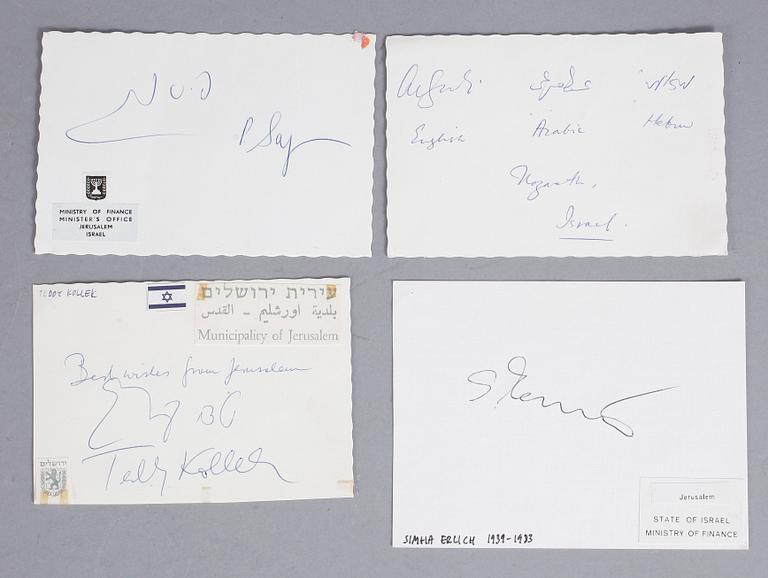 פ. ספיר
P. Sapir
MINISTRY OF FINANCE
MINISTER'S OFFICE
JERUSALEM
ISRAEL
English
Arabic
Hebrew
Nazareth,
Israel.
TEDDY KOLLEK
עירית ירושלים
بلدية اورشليم - القدس
Municipality of Jerusalem
Best wishes from Jerusalem
Teddy Kollek
ירושלים
SIMHA ERLICH 1939-1983
Jerusalem
STATE OF ISRAEL
MINISTRY OF FINANCE